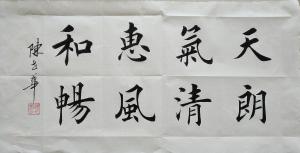 天朗
氣清
惠風
和暢
陳志華